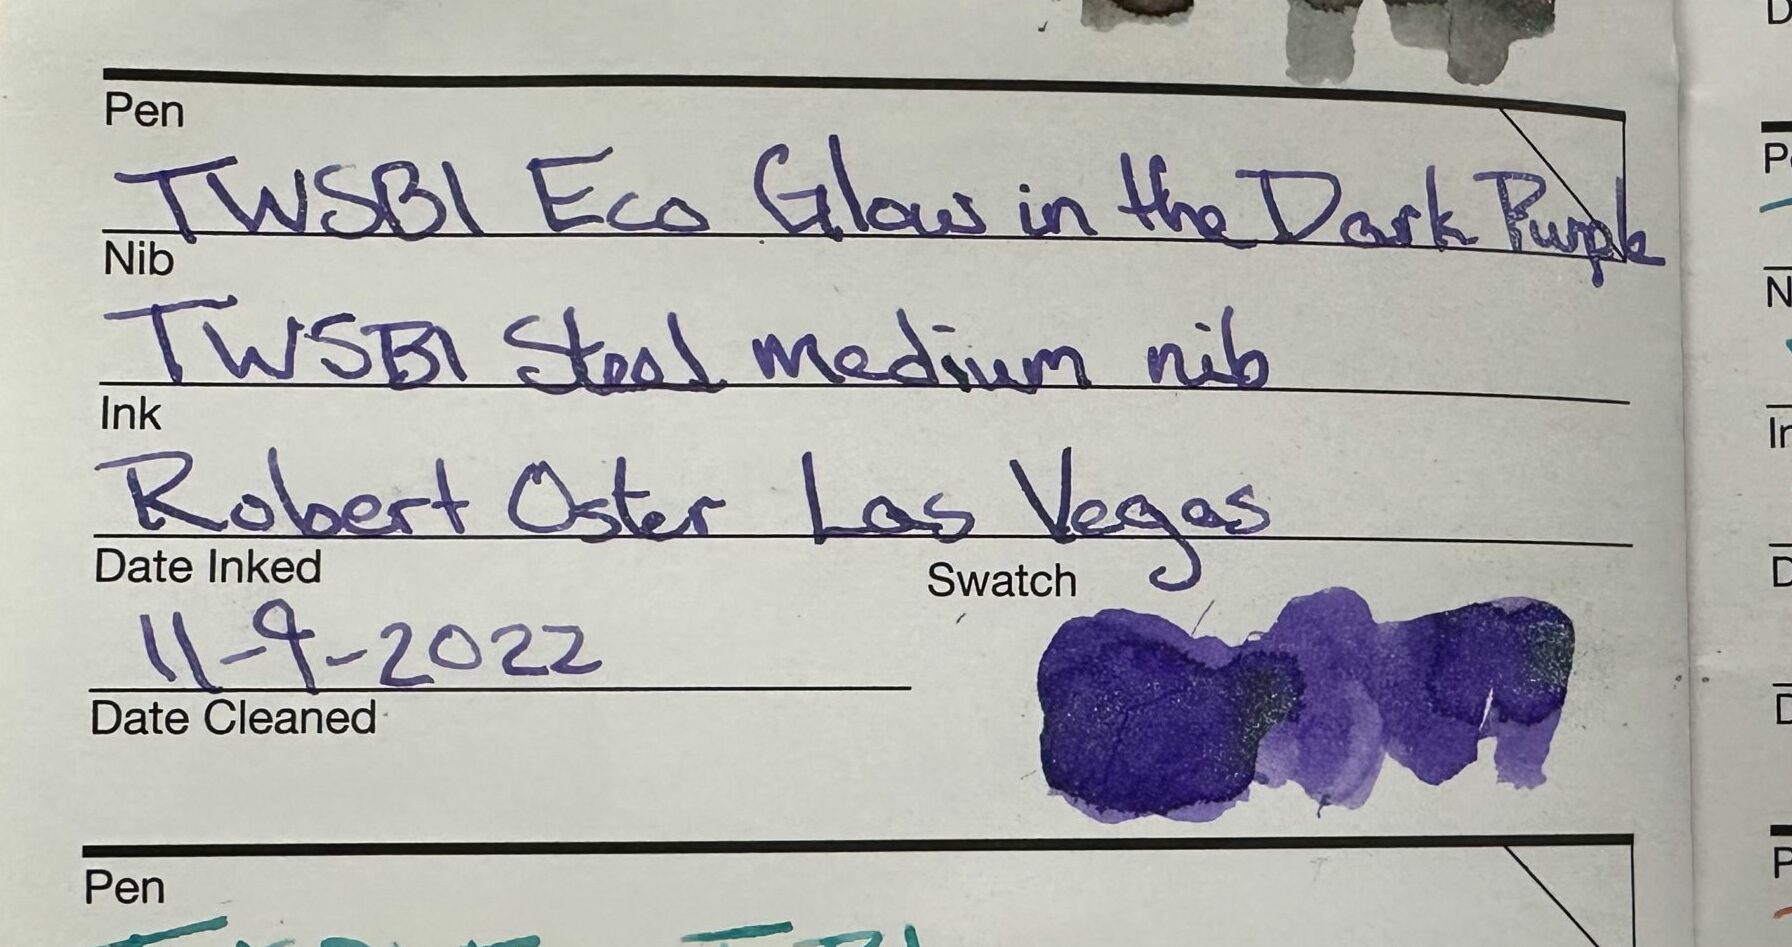 Pen
TWSBI Eco Glow in the Dark Purple
Nib
TWSBI Steel medium nib
Ink
Robert Oster Las Vegas
Date Inked
Swatch
11-9-2022
Date Cleaned
Pen